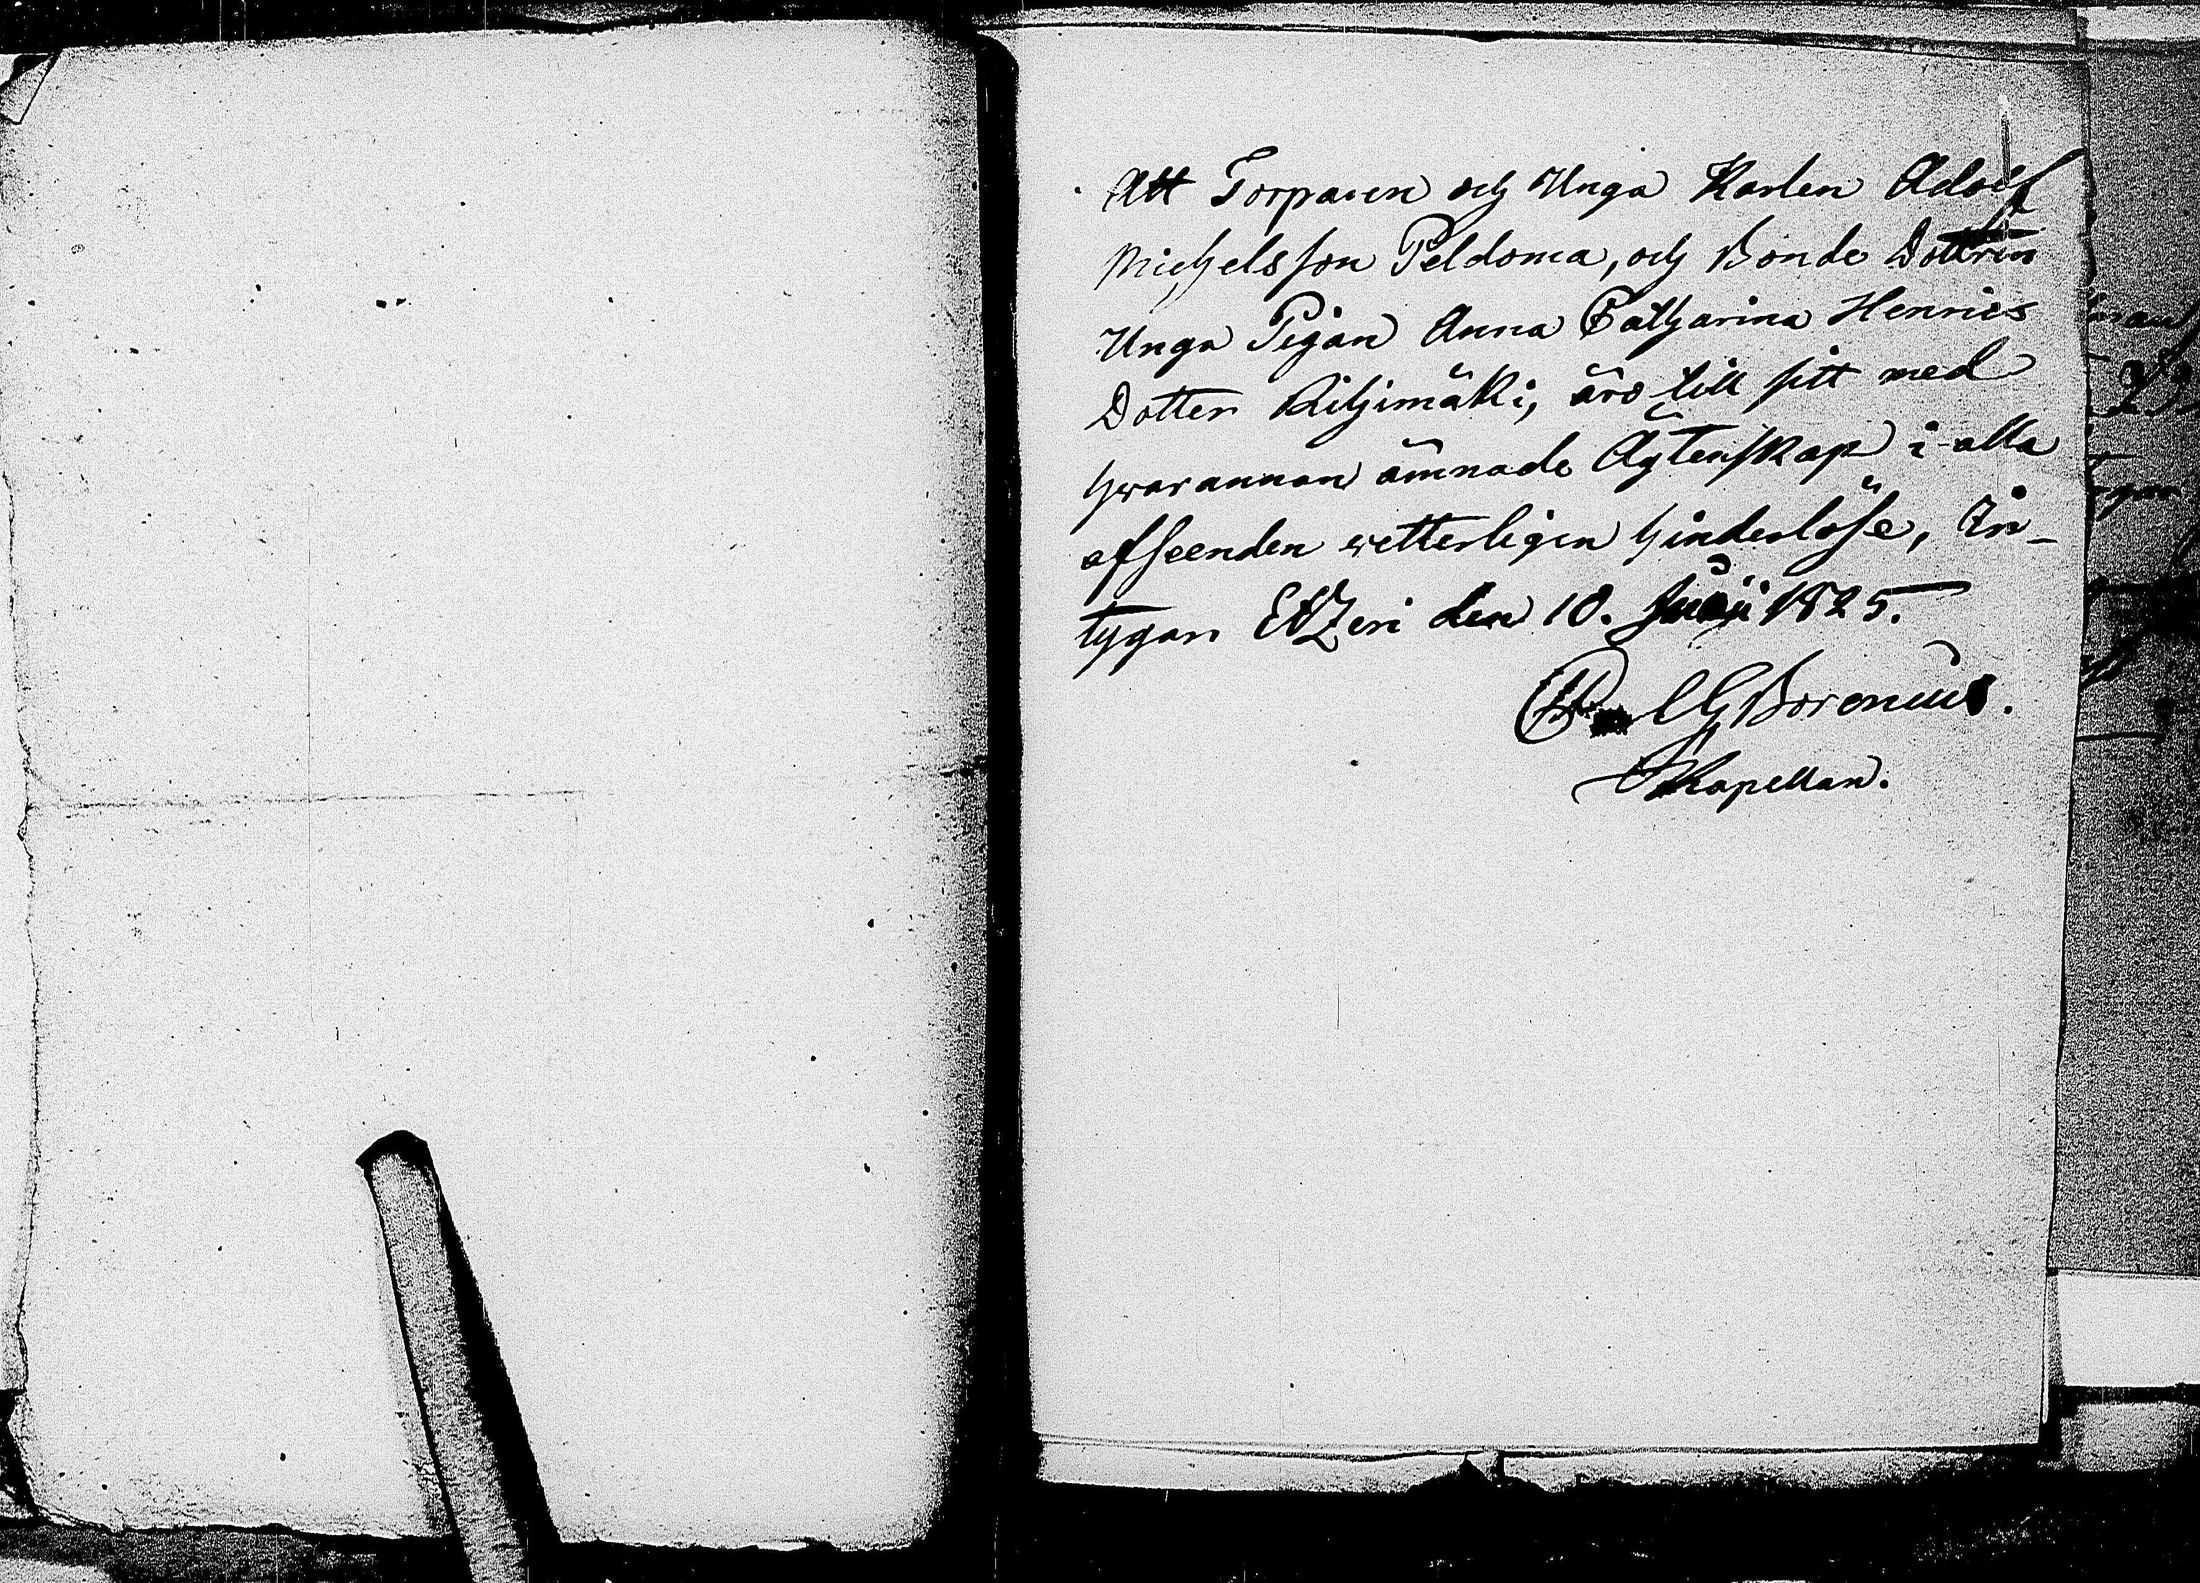 Att Torparen och Unga Karlen Adolf
Michelsson Peldoma, och Bonde Dottren
Unga Pigan Anna Catharina Henrics
Dotter Riihimäki, äro till sitt med
hwarannan ämnade Ägtenskap i alla
afseenden wetterligen hinderlöse, In-
tygar Etzeri den 10. Juni 1825.
C G Boronius.
Kapellan.